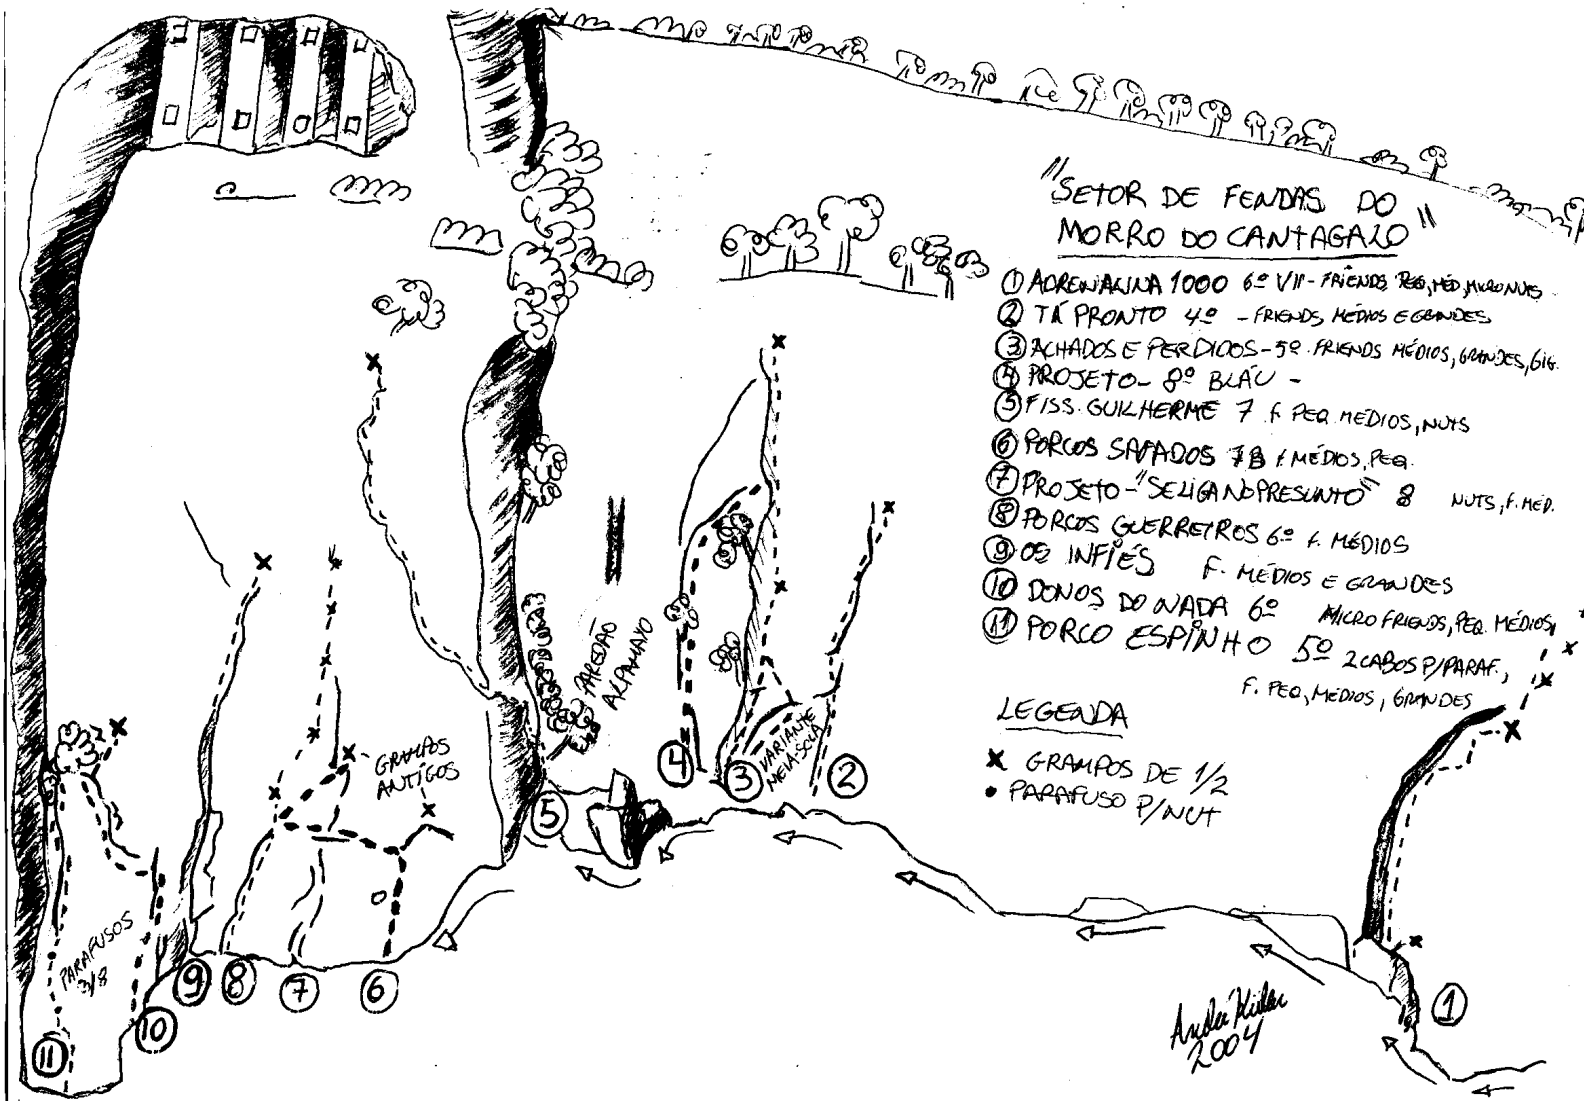 "SETOR DE FENDAS DO
MORRO DO CANTAGALO"
① ADRENALINA 1000 6º VII - FRIENDS, PEQ, MÉD, MICRONUTS
② TÁ PRONTO 4º - FRIENDS MÉDIOS E GRANDES
③ ACHADOS E PERDIDOS - 5º. FRIENDS MÉDIOS, GRANDES, GIG.
④ PROJETO - 8º BLÁU -
⑤ FISS. GUILHERME 7 F. PEQ. MEDIOS, NUTS
⑥ PORCOS SAFADOS 7B F. MÉDIOS, PEQ.
⑦ PROJETO - "SELIGANOPRESUNTO" 8 NUTS, F. MÉD.
⑧ PORCOS GUERREIROS 6º F. MÉDIOS
⑨ OS INFIÉS F. MÉDIOS E GRANDES
⑩ DONOS DO NADA 6º MICRO FRIENDS, PEQ. MÉDIOS,
⑪ PORCO ESPINHO 5º 2 CABOS P/PARAF.,
F. PEQ, MEDIOS, GRANDES
LEGENDA
X GRAMPOS DE 1/2
• PARAFUSO P/NUT
PAREDÃO
ALPAMAYO
GRAMPOS
ANTIGOS
VARIANTE
MEIA-SOLA
PARAFUSOS
3/8
④
③
②
⑤
⑨
⑧
⑦
⑥
①
⑩
⑪
2004